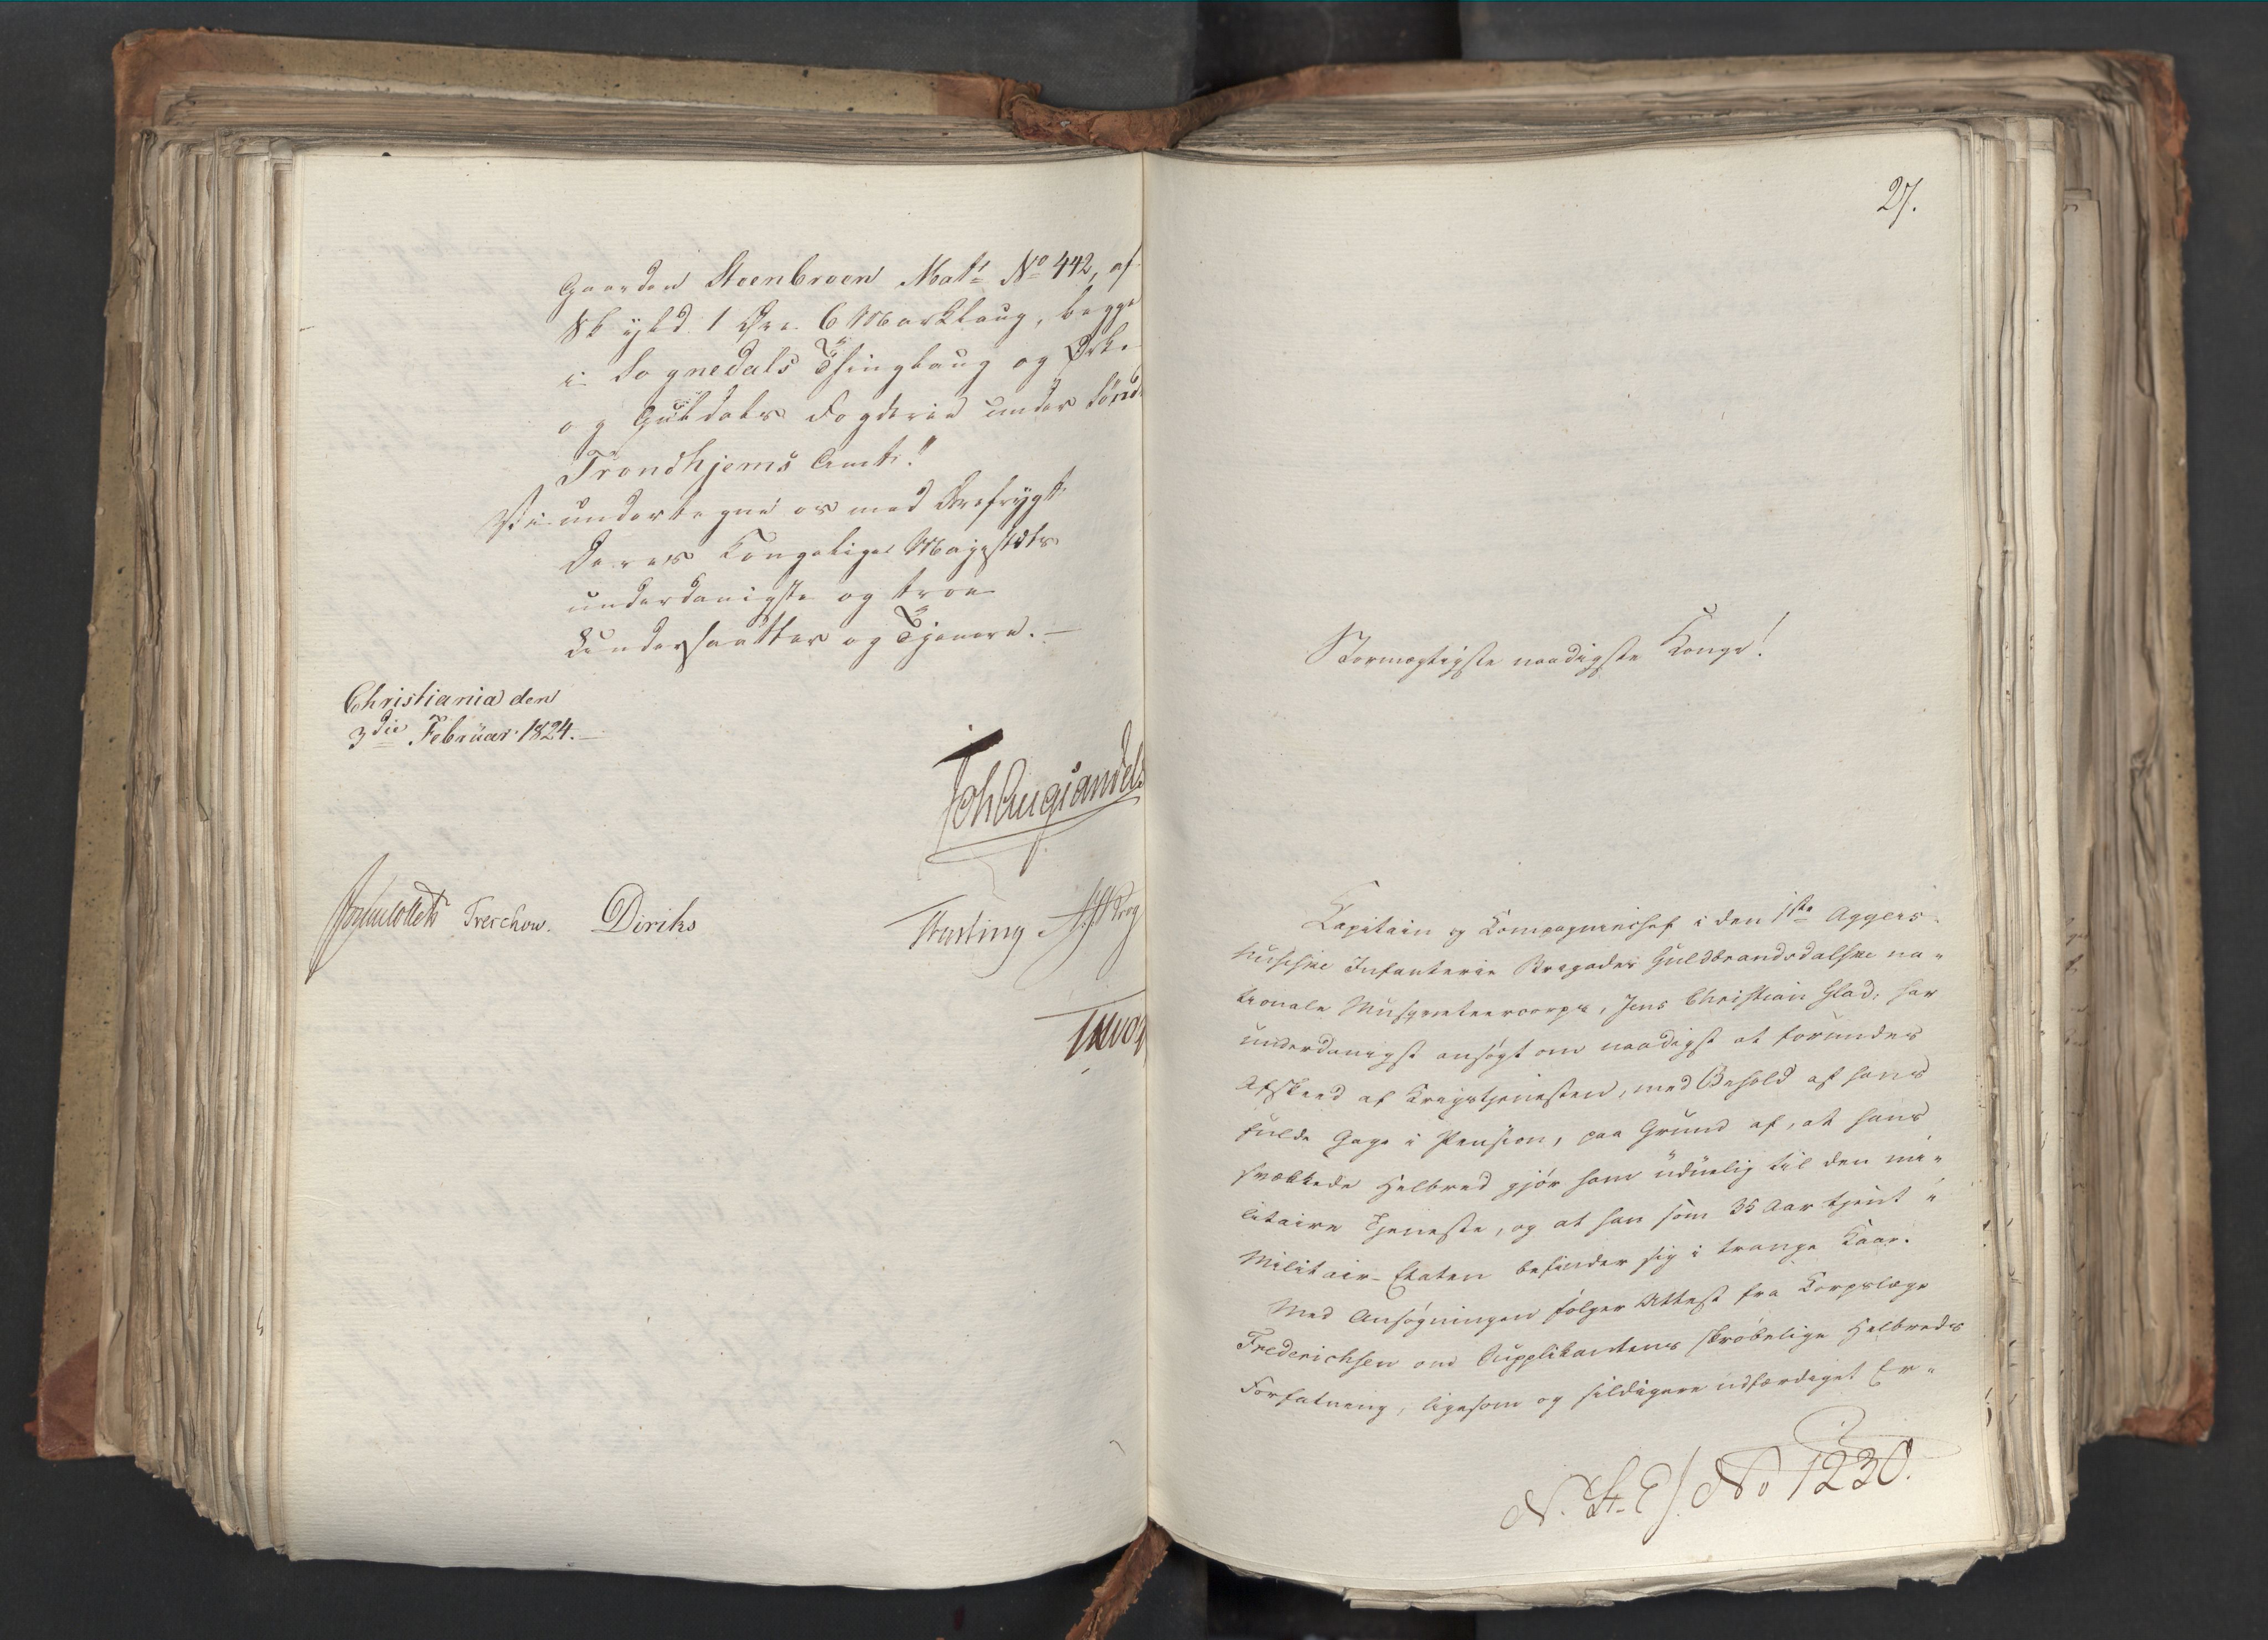 Gaarden Steenbroen Mat: No 442, af
Skyld 1 Øre 6 Marklaug, begge
i Sognedals Thinglaug og Ørke-
og Guldals Fogderie under Sønd
Trondhjems Amt."
Vi undertegne os med Ærefrygt
Deres Kongelige Majestæts
underdanigste og troe
Undersaatter og Tjenere. —
Christiania den
3die Februar 1824. —
Joh Aug Sandels
Jonas Collett Treschow. Diriks
Fasting
27.
Stormægtigste naadigste Konge!
Kapitain og Kompagniechef i den 1ste Aggers-
huusiske Infanterie Brigades Guldbrandsdalske na-
tionale Musqueteercorps, Jens Christian Glad, har
underdanigst ansøgt om naadigst at forundes
Afskeed af Krigstjenesten, med Behold af hans
fulde Gage i Pension, paa Grund af, at hans
svækkede Helbred gjør ham uduelig til den mi-
litaire Tjeneste, og at han som 35 Aar tjent i
Militair-Etaten befinder sig i trange Kaar.
Med Ansøgningen følger Attest fra Korpslæge
Frederichsen om Supplikantens skrøbelige Helbreds
Forfatning, ligesom og sildigere udfærdiget Er-
N. St. E. No 1230.